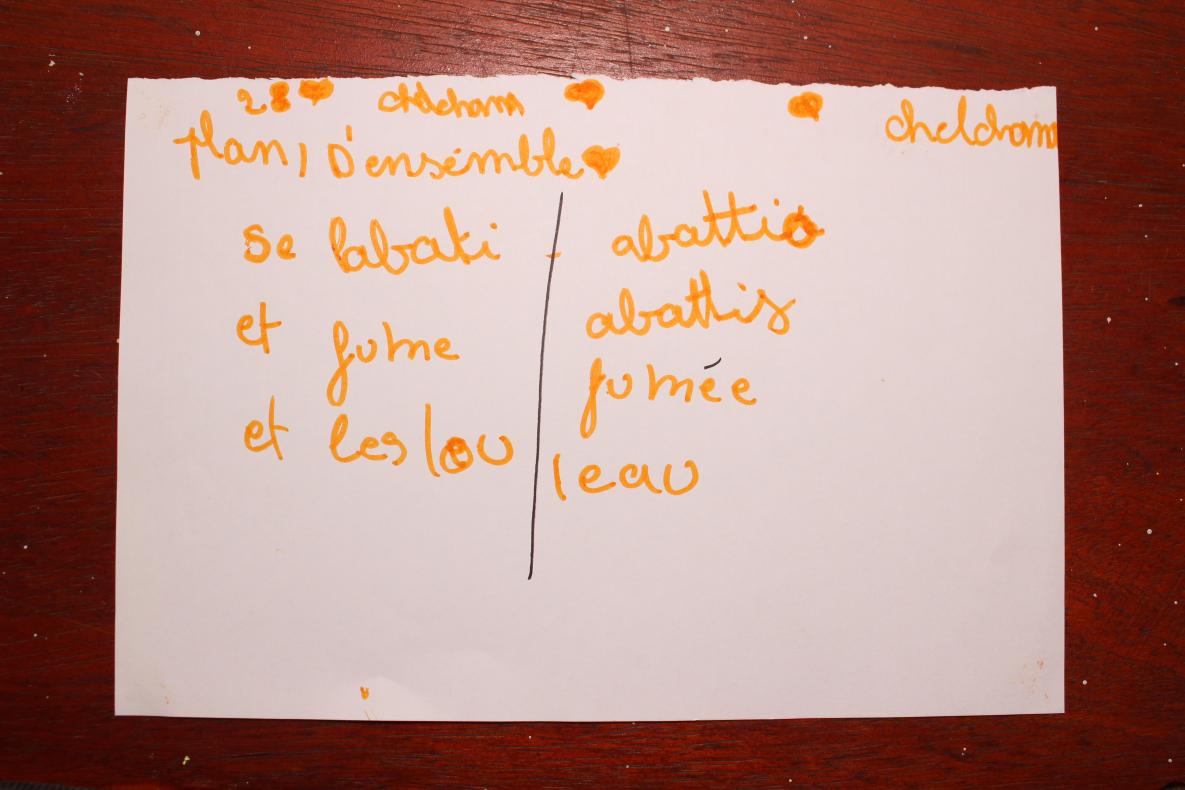 28 chelcham chelcham
plan, D'ensémble
se labati
et fume
et les lou
abattis
abattis
fumée
leau